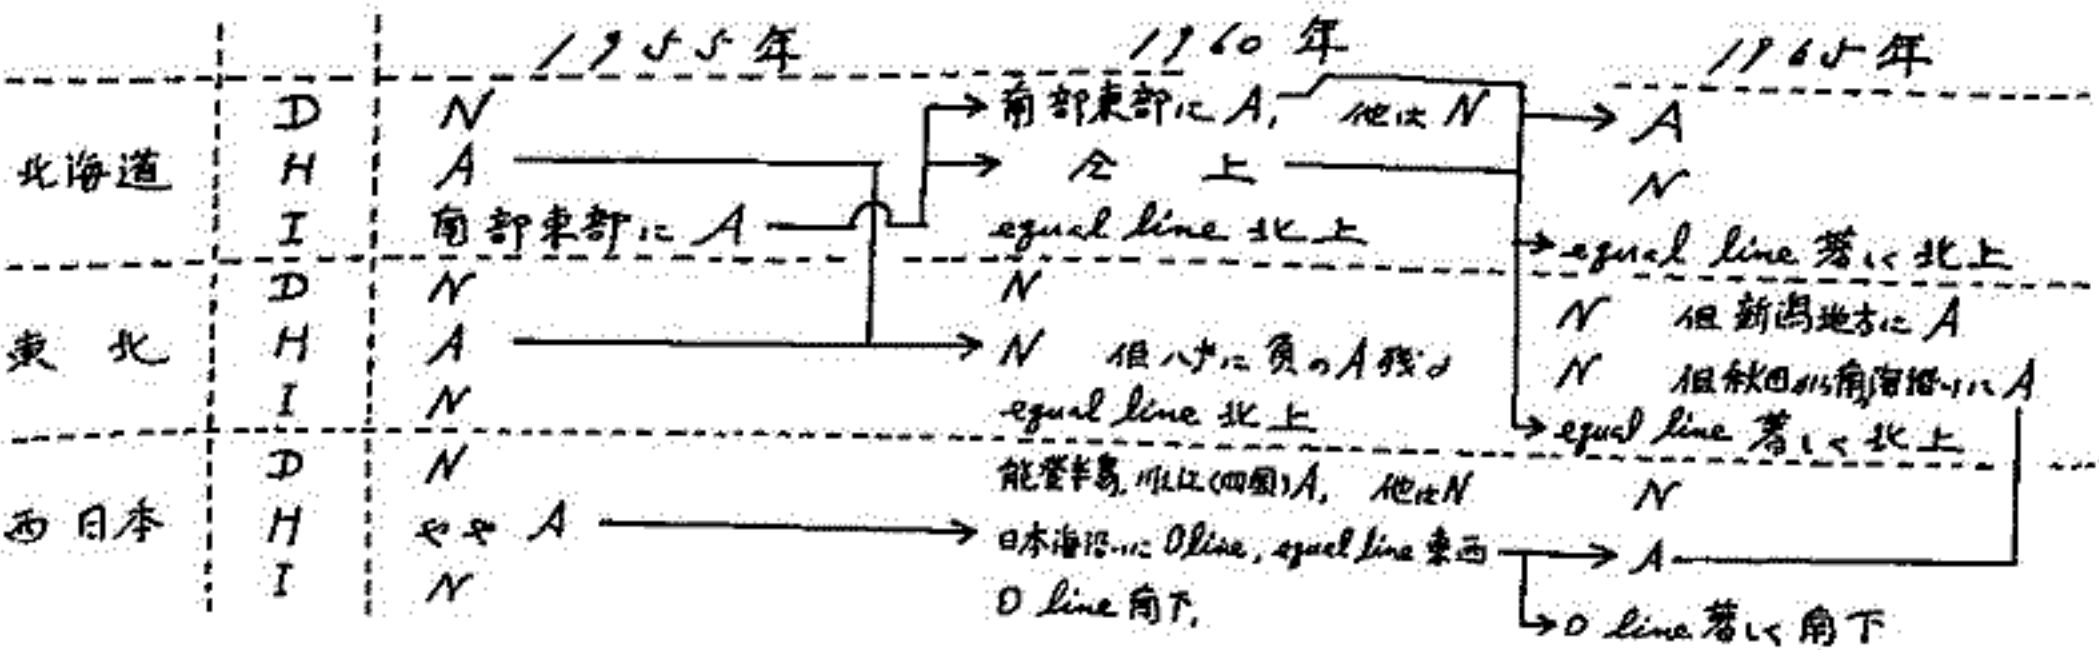 1955年 1960年 1965年
北海道 D N 南部東部に A, 他は N A
H A 仝 上 N
I 南部東部に A equal line 北上 equal line 著しく北上
東北 D N N N 但新潟地方に A
H A N 但八戸に負の A 残る N 但秋田から南海沿いに A
I N equal line 北上 equal line 著しく北上
西日本 D N 能登半島, (四国)A, 他はN N
H やや A 日本海沿いに 0 line, equal line 東西 A
I N 0 line 南下, 0 line 著しく南下